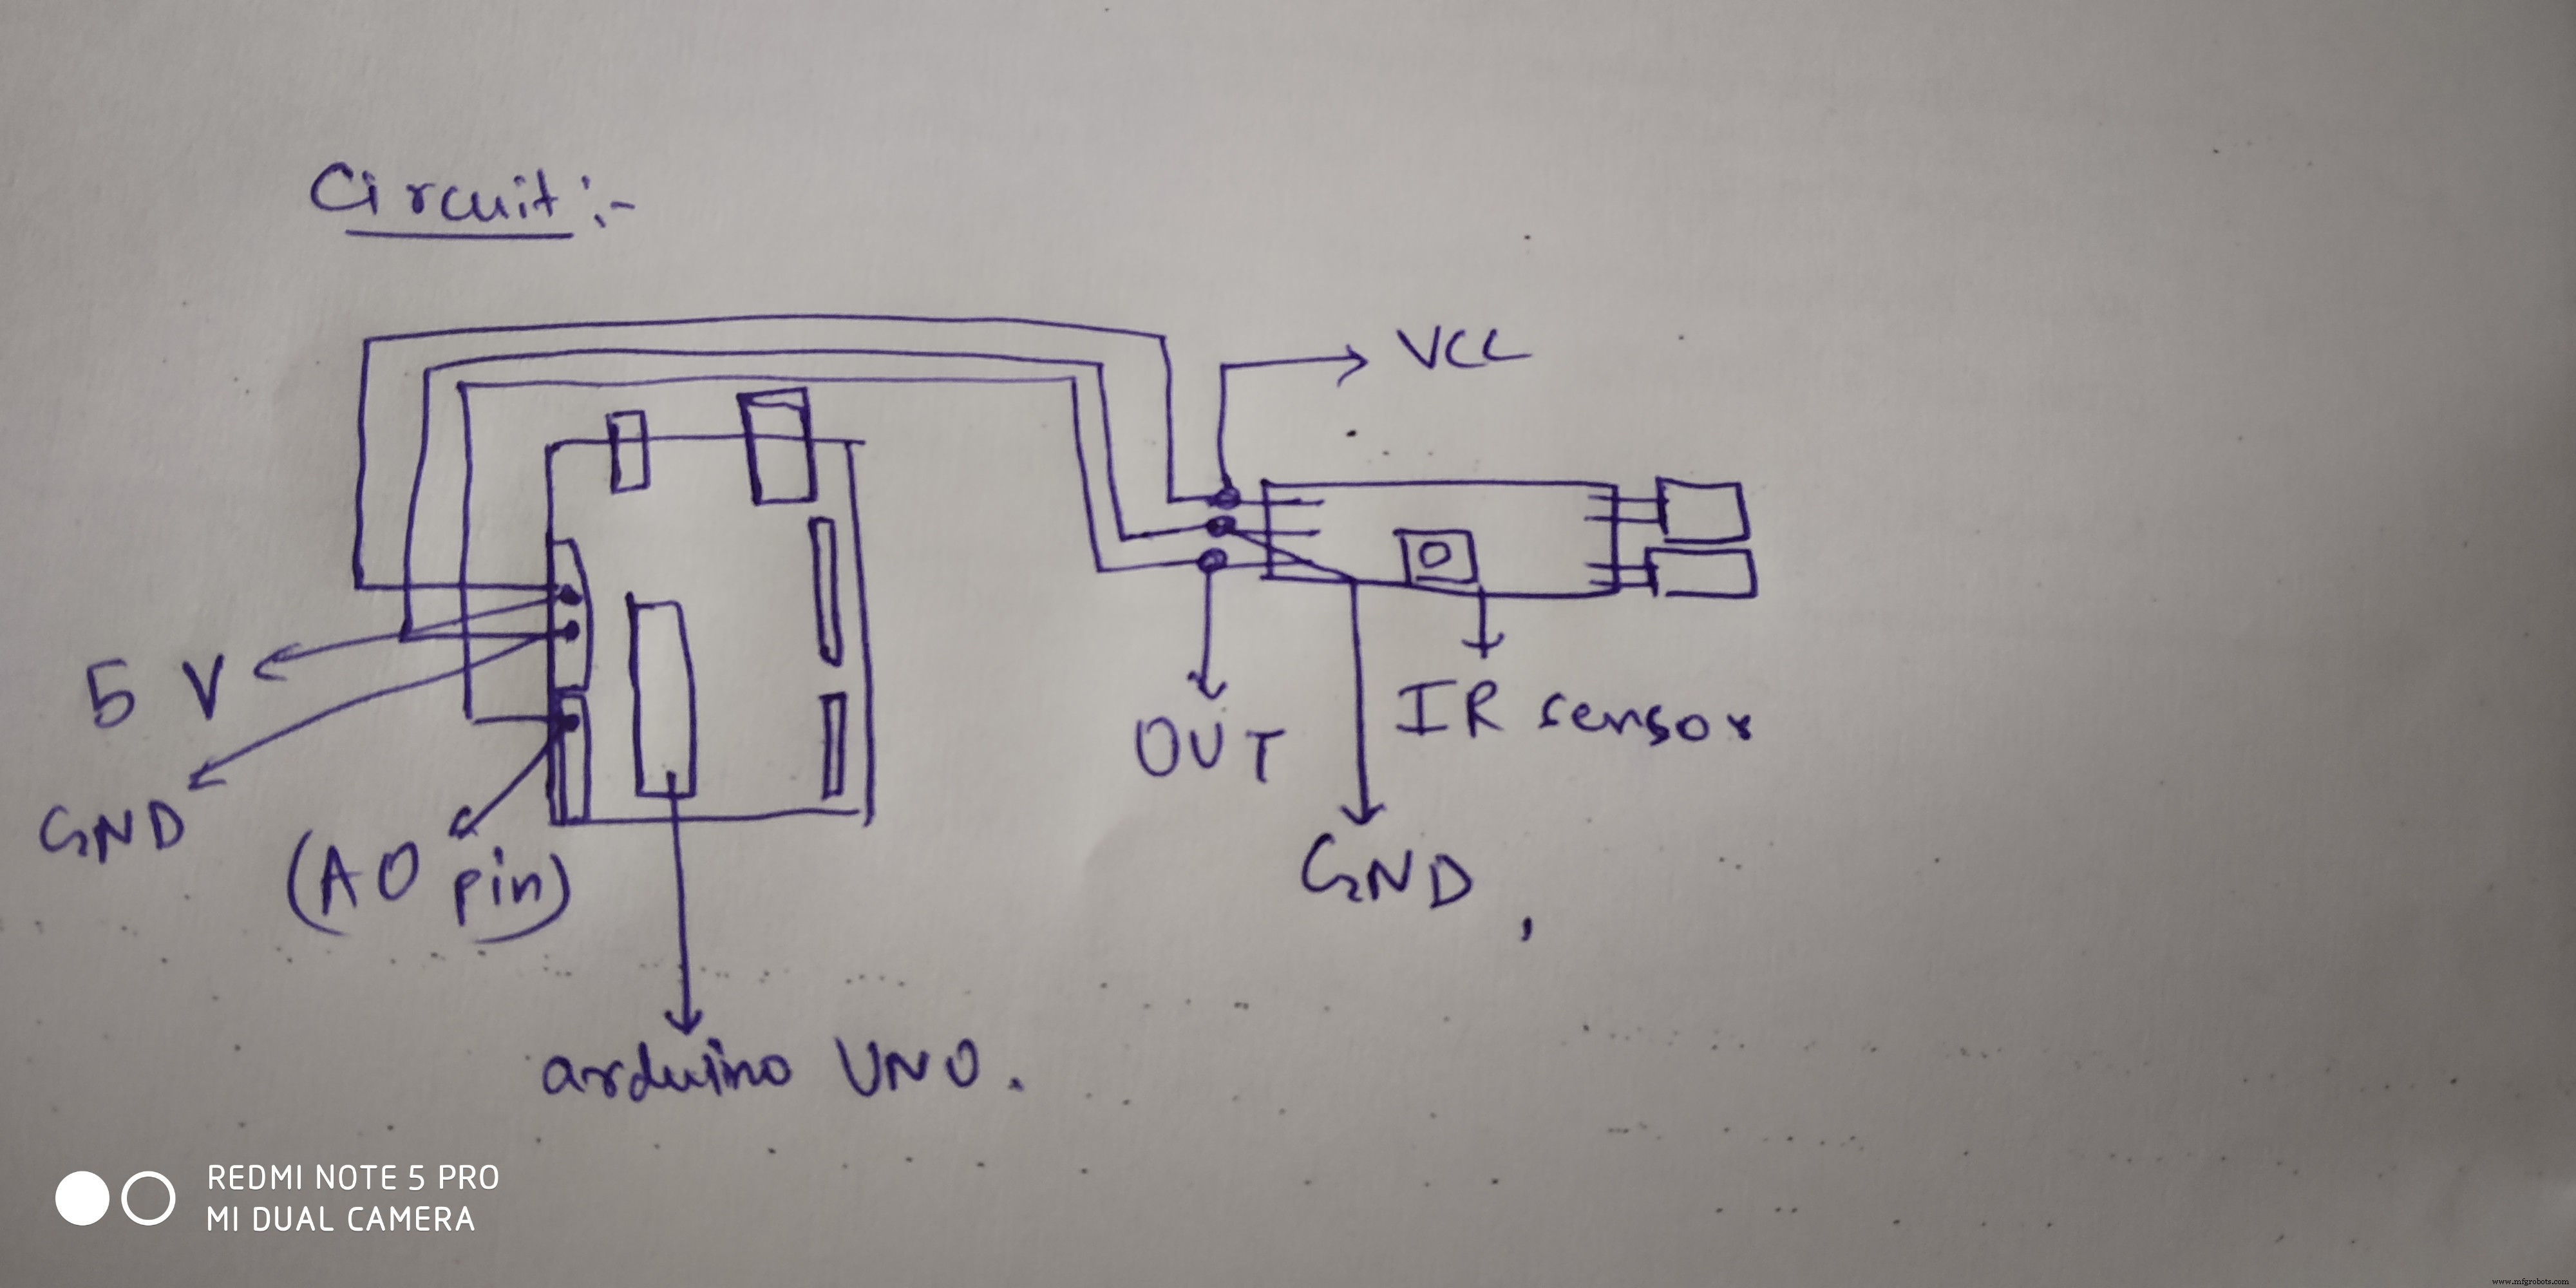 Circuit :-
VCC
5 V
GND
(A0 pin)
OUT
IR sensor
GND
arduino UNO.
REDMI NOTE 5 PRO
MI DUAL CAMERA
www.mfgrobots.com